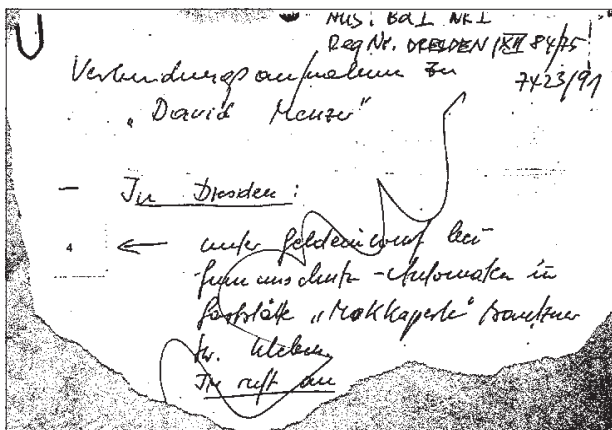 Aus: Bd I Nr. 1
Reg Nr. DRESDEN/XII 84/75
7423/91
Verbindungsaufnahme zu
„David Menzer"
– In Dresden:
4 ← unter Geldeinwurf bei
-Automaten in
Gaststätte „Mokkaperle" Bautzner
Str. kleben
IM ruft an